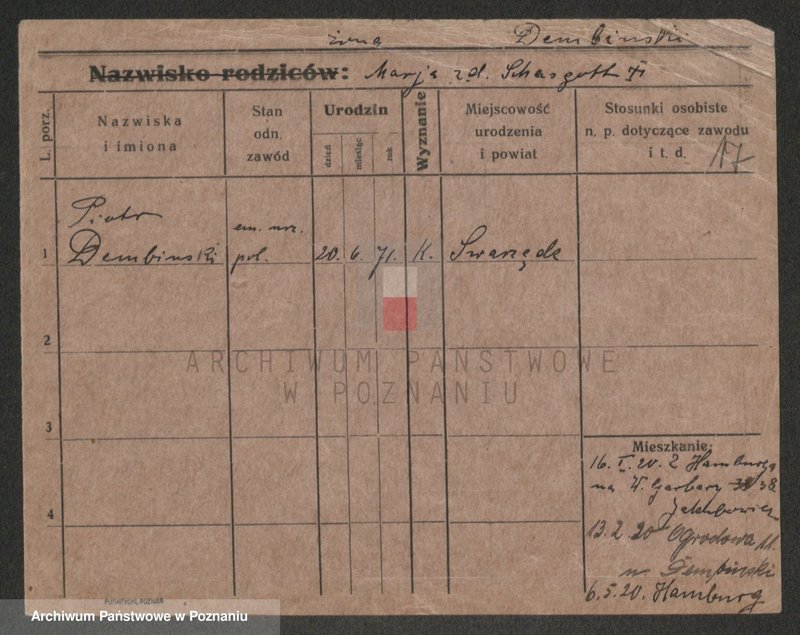 żona Dembinski
Nazwisko rodziców: Marja zd. Schasgott
L. porz.
Nazwiska
i imiona
Stan
odn.
zawód
Urodzin
dzień
miesiąc
rok
Wyznanie
Miejscowość
urodzenia
i powiat
Stosunki osobiste
n. p. dotyczące zawodu
i t. d.
17
Piotr em. urz.
1 Dembinski pol. 20. 6. 71. K. Swarzędz
2
ARCHIWUM PAŃSTWOWE
W POZNANIU
3
Mieszkanie:
16. I. 20. z Hamburga
na W. Garbary 38
Jakubowicz
4
13. 2. 20 Ogrodowa 11
Dembinski
6. 5. 20. Hamburg
PUTIATYCKI, POZNAŃ
Archiwum Państwowe w Poznaniu